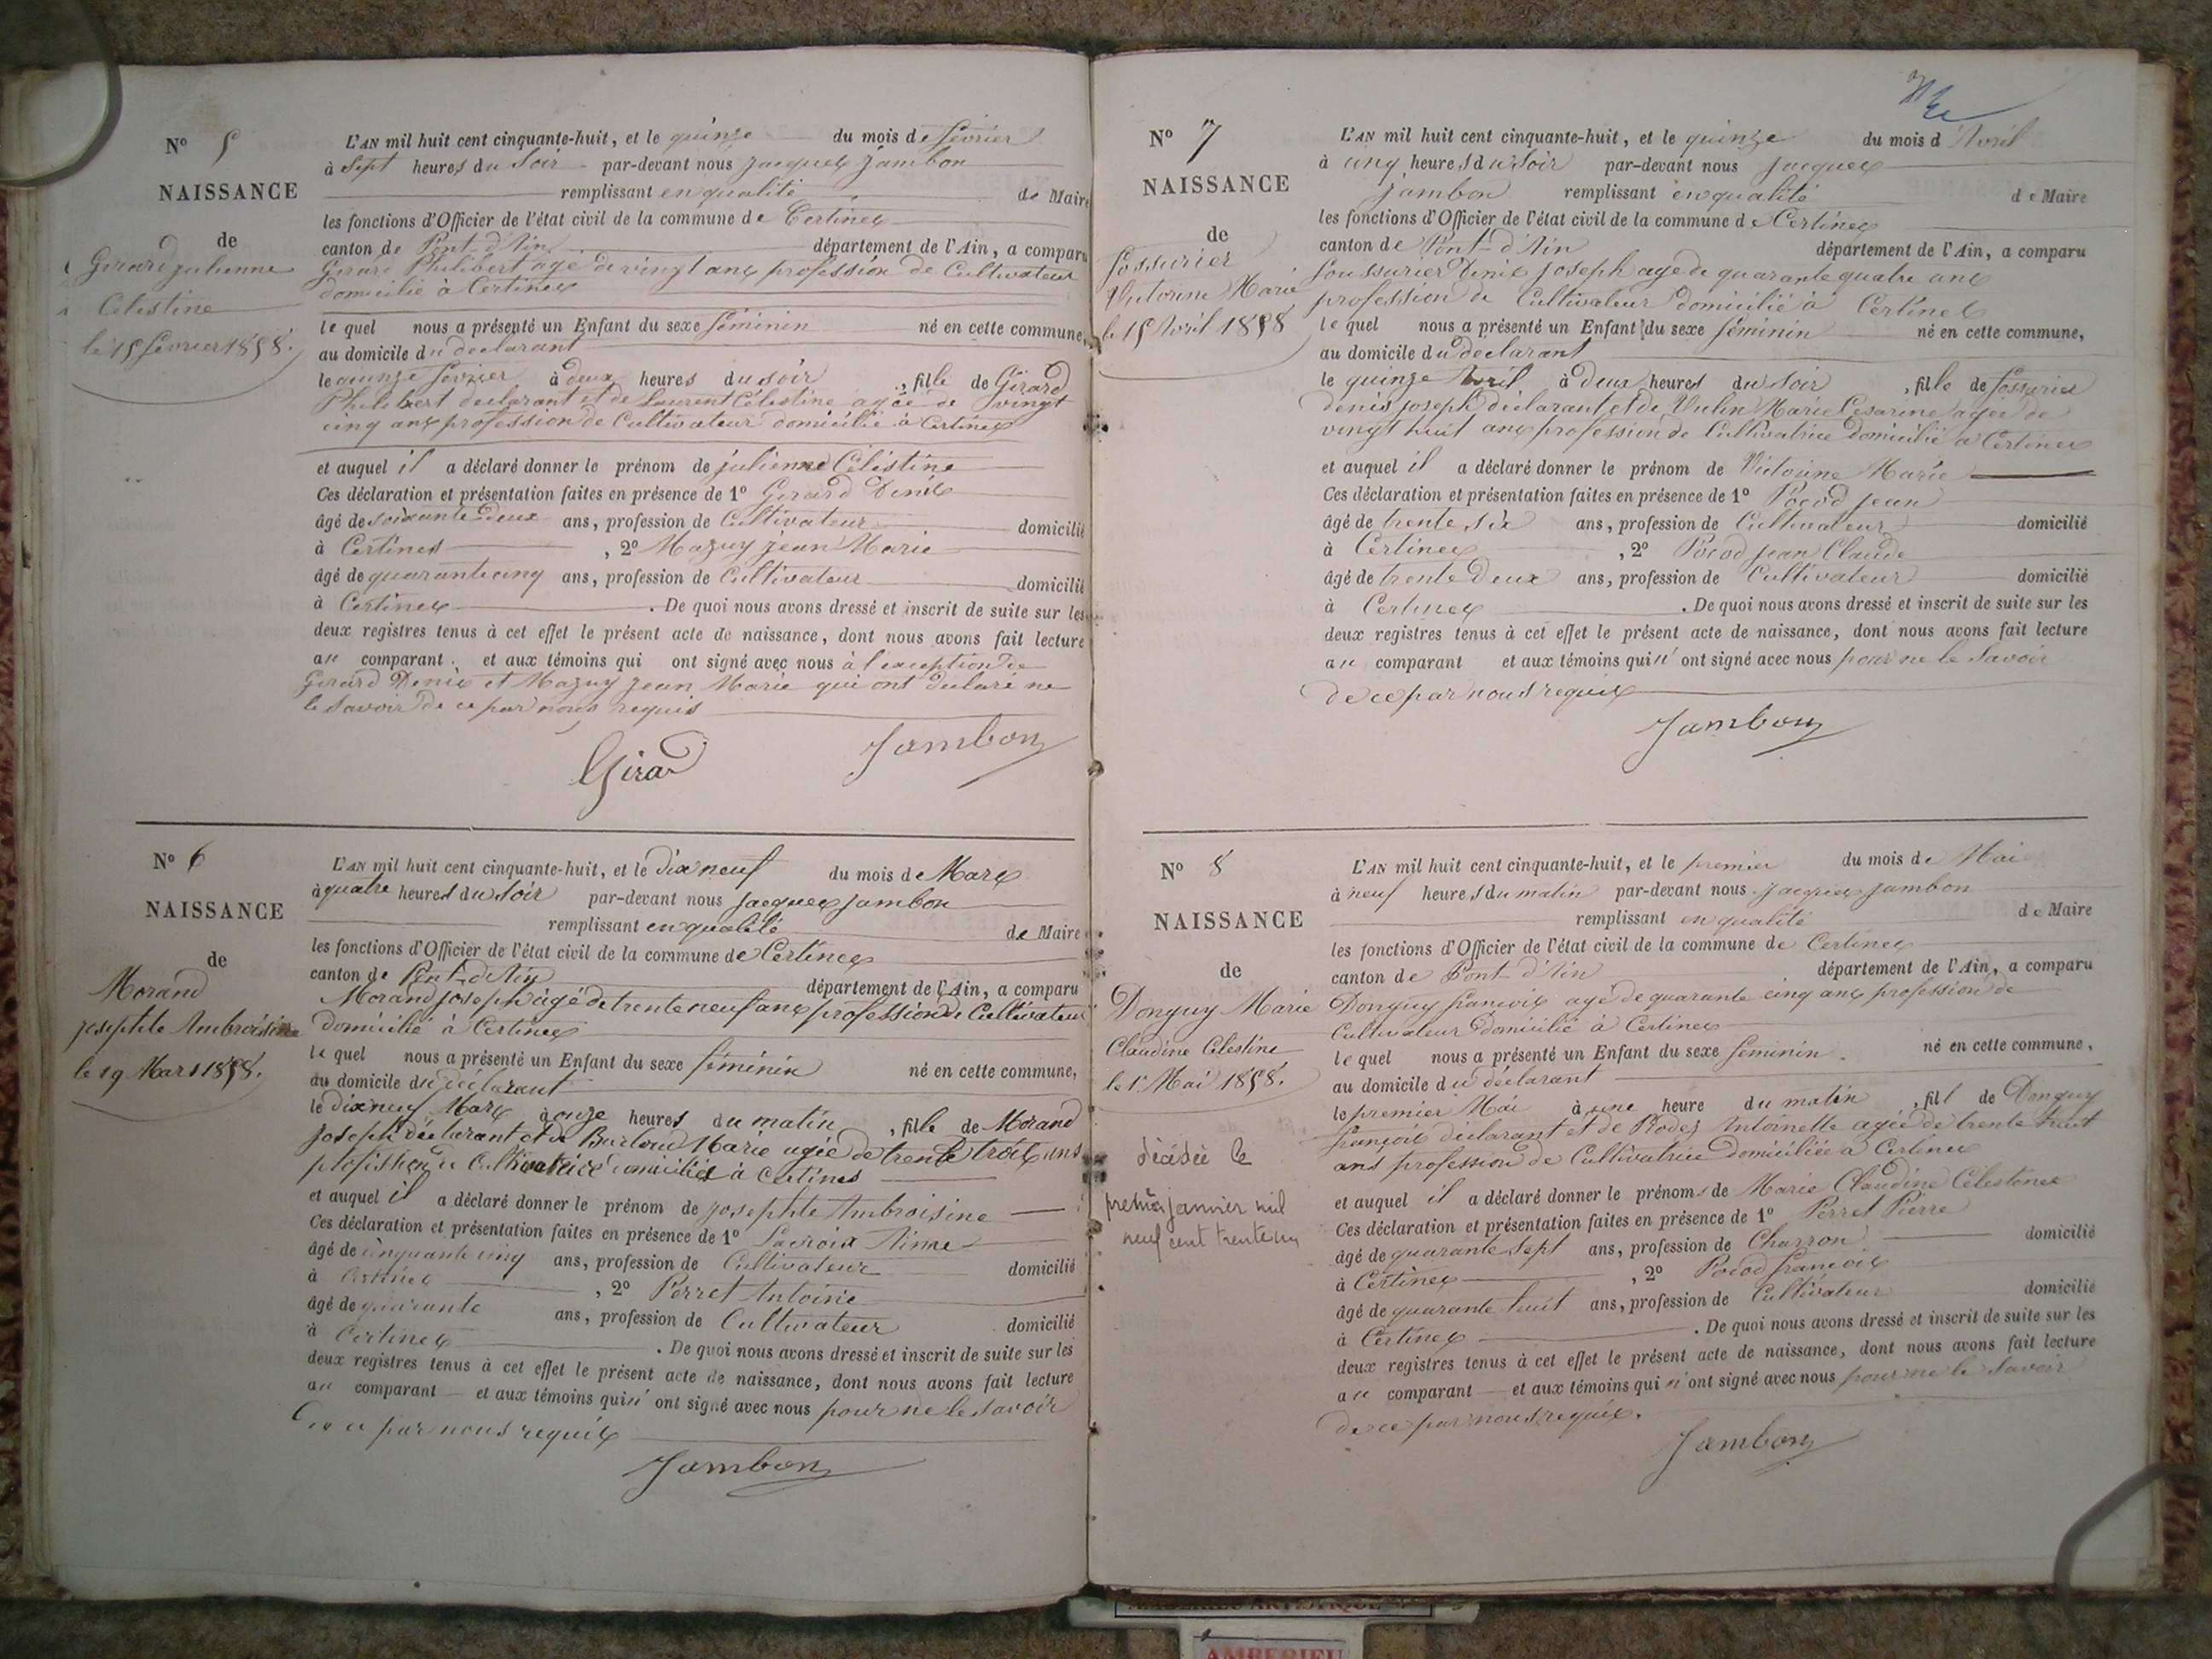 Nº 5
NAISSANCE
de
Girard julienne
Célestine
le 15 fevrier 1858.
L'AN mil huit cent cinquante-huit, et le quinze du mois de fevrier
à Sept heures du Soir par-devant nous jacques jambon
remplissant en qualité de Maire
les fonctions d'Officier de l'état civil de la commune de Certines
canton de Pont-d'Ain département de l'Ain, a comparu
Girard Philibert agé de vingt ans profession de Cultivateur
domicilié à Certines
le quel nous a présenté un Enfant du sexe féminin né en cette commune,
au domicile du déclarant
le quinze fevrier à deux heures du soir, fille de Girard
Philibert declarant et de Laurent Célestine agée de vingt
cinq ans profession de Cultivateur domicilié à Certines
et auquel il a déclaré donner le prénom de julienne Célestine
Ces déclaration et présentation faites en présence de 1º Girard Denis
âgé de soixante deux ans, profession de Cultivateur domicilié
à Certines, 2º Mazuy jean Marie
âgé de quarante cinq ans, profession de Cultivateur domicilié
à Certines. De quoi nous avons dressé et inscrit de suite sur les
deux registres tenus à cet effet le présent acte de naissance, dont nous avons fait lecture
au comparant et aux témoins qui ont signé avec nous à l'exception de
Girard Denis et Mazuy jean Marie qui ont déclaré ne
le savoir de ce par nous requis
Girard Jambon
Nº 6
NAISSANCE
de
Morand
josephte Ambroisine
le 19 Mars 1858.
L'AN mil huit cent cinquante-huit, et le dix neuf du mois de Mars
à quatre heures du soir par-devant nous jacques jambon
remplissant en qualité de Maire
les fonctions d'Officier de l'état civil de la commune de Certines
canton de Pont-d'Ain département de l'Ain, a comparu
Morand joseph agé de trente neuf ans profession de Cultivateur
domicilié à Certines
le quel nous a présenté un Enfant du sexe féminin né en cette commune,
au domicile du déclarant
le dix neuf Mars à onze heures du matin, fille de Morand
joseph déclarant et de Marie agée de trente trois ans
profession de Cultivatrice domiciliée à Certines
et auquel il a déclaré donner le prénom de josephte Ambroisine
Ces déclaration et présentation faites en présence de 1º Lacroix Aimé
âgé de cinquante cinq ans, profession de Cultivateur domicilié
à Certines, 2º Perret Antoine
âgé de quarante ans, profession de Cultivateur domicilié
à Certines. De quoi nous avons dressé et inscrit de suite sur les
deux registres tenus à cet effet le présent acte de naissance, dont nous avons fait lecture
au comparant et aux témoins qui n'ont signé avec nous pour ne le savoir
de ce par nous requis
Jambon
Nº 7
NAISSANCE
de
Fossurier
Victorine Marie
le 15 Avril 1858
L'AN mil huit cent cinquante-huit, et le quinze du mois d'Avril
à cinq heures du soir par-devant nous jacques
jambon remplissant en qualité de Maire
les fonctions d'Officier de l'état civil de la commune de Certines
canton de Pont-d'Ain département de l'Ain, a comparu
Foussurier Denis joseph agé de quarante quatre ans
profession de Cultivateur domicilié à Certines
le quel nous a présenté un Enfant du sexe féminin né en cette commune,
au domicile du déclarant
le quinze Avril à deux heures du soir, fille de Fossurier
denis joseph déclarant et de Vulin Marie Césarine agée de
vingt huit ans profession de Cultivatrice domicilié à Certines
et auquel il a déclaré donner le prénom de Victorine Marie
Ces déclaration et présentation faites en présence de 1º Pocod jean
âgé de trente six ans, profession de Cultivateur domicilié
à Certines, 2º Pocod jean Claude
âgé de trente deux ans, profession de Cultivateur domicilié
à Certines. De quoi nous avons dressé et inscrit de suite sur les
deux registres tenus à cet effet le présent acte de naissance, dont nous avons fait lecture
au comparant et aux témoins qui n'ont signé avec nous pour ne le savoir
de ce par nous requis
Jambon
Nº 8
NAISSANCE
de
Donguy Marie
Claudine Célestine
le 1er Mai 1858.
décédée le
premier janvier mil
neuf cent trente un
L'AN mil huit cent cinquante-huit, et le premier du mois de Mai
à neuf heures du matin par-devant nous jacques jambon
remplissant en qualité de Maire
les fonctions d'Officier de l'état civil de la commune de Certines
canton de Pont-d'Ain département de l'Ain, a comparu
Donguy françois agé de quarante cinq ans profession de
Cultivateur domicilié à Certines
le quel nous a présenté un Enfant du sexe féminin né en cette commune,
au domicile du déclarant
le premier Mai à une heure du matin, fill de Donguy
françois déclarant et de Rodez Antoinette agée de trente huit
ans profession de Cultivatrice domiciliée à Certines
et auquel il a déclaré donner le prénoms de Marie Claudine Célestine
Ces déclaration et présentation faites en présence de 1º Perret Pierre
âgé de quarante sept ans, profession de Charron domicilié
à Certines, 2º Pocod françois
âgé de quarante huit ans, profession de Cultivateur domicilié
à Certines. De quoi nous avons dressé et inscrit de suite sur les
deux registres tenus à cet effet le présent acte de naissance, dont nous avons fait lecture
au comparant et aux témoins qui n'ont signé avec nous pour ne le savoir
de ce par nous requis.
Jambon